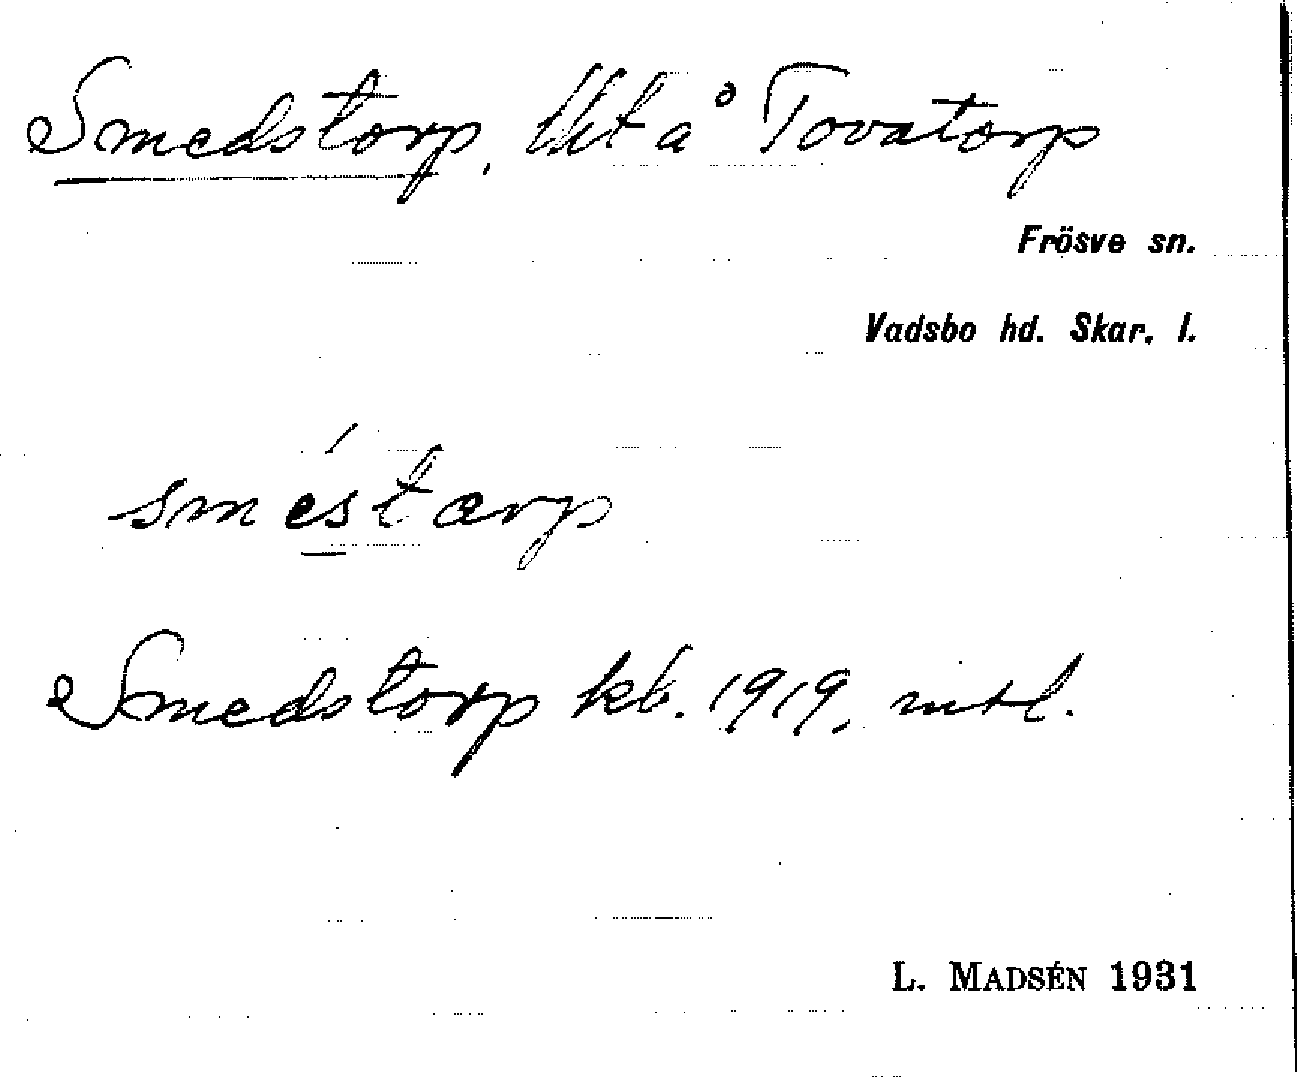 Smedstorp, lht å Tovatorp
Frösve sn.
Vadsbo hd. Skar. l.
sméstærp
Smedstorp kb. 1919, mtl.
L. MADSÉN 1931